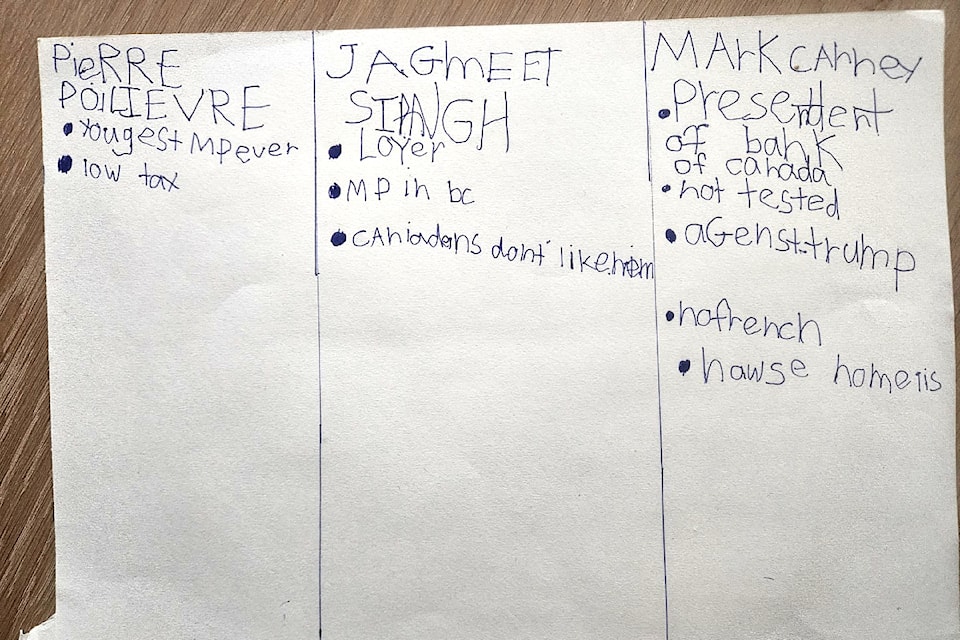 PieRRE
POILIEVRE
• Yougest MP ever
• low tax
JAGmEET
SINGH
• Loyer
• MP in bc
• CANiadans dont' like him
MArK CArney
• Presentdent
of bank
of canada
• not tested
• aGenst trump
• no french
• hawse homeiis